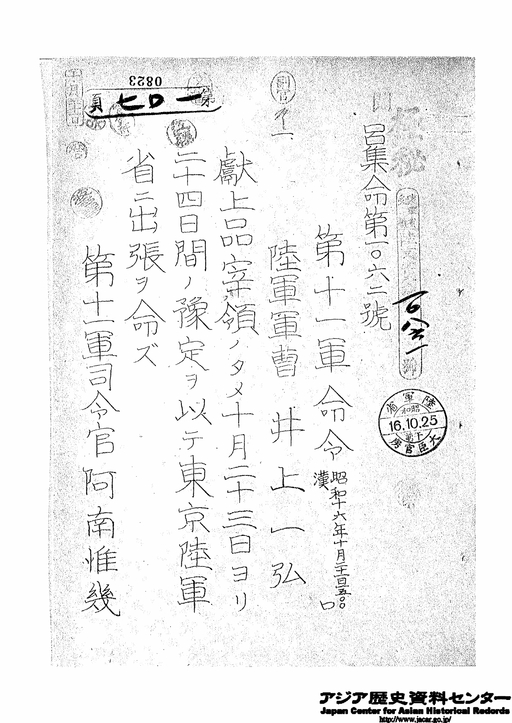 極秘
呂集命第一〇六二號
第十一軍命令
昭和十六年十月
漢口
陸軍軍曹 井上一弘
獻上品宰領ノタメ十月二十三日ヨリ
二十四日間ノ豫定ヲ以テ東京陸軍
省ニ出張ヲ命ズ
第十一軍司令官 阿南惟幾
陸軍省
昭和
16.10.25
大臣官房
副官
0823
第一七〇一頁
アジア歴史資料センター
Japan Center for Asian Historical Records
http://www.jacar.go.jp/